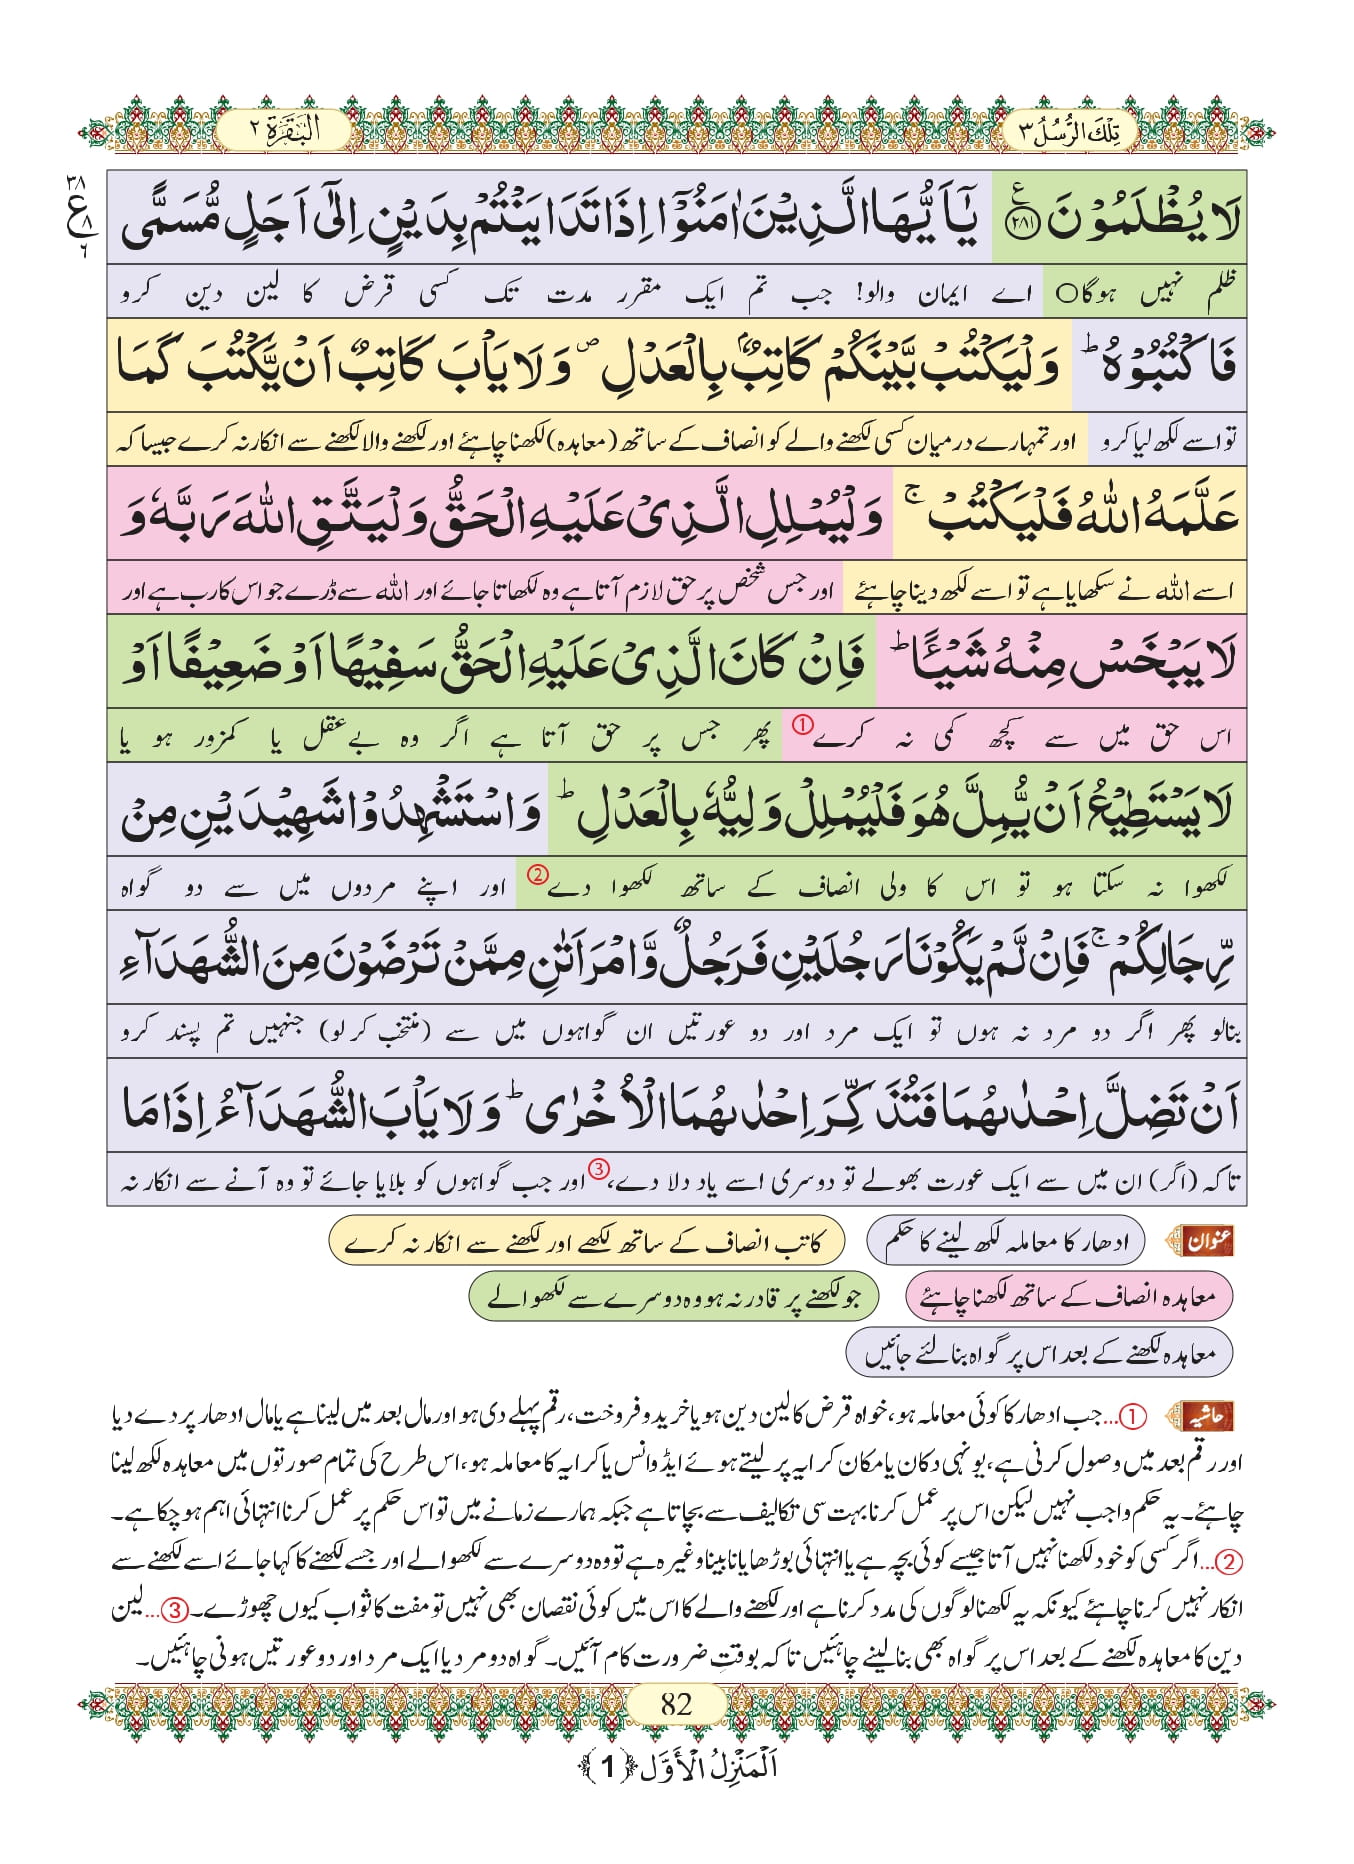 تِلْكَ الرُّسُلُ ٣
اَلْبَقَرَة ٢
لَا یُظْلَمُوْنَ ﴿۲۸۱﴾ یٰۤاَیُّهَا الَّذِیْنَ اٰمَنُوْۤا اِذَا تَدَایَنْتُمْ بِدَیْنٍ اِلٰۤى اَجَلٍ مُّسَمًّى
ع
٣٨
ع
٨
٦
ظلم نہیں ہوگا○ اے ایمان والو! جب تم ایک مقرر مدت تک کسی قرض کا لین دین کرو
فَاكْتُبُوْهُ ؕ وَ لْیَكْتُبْ بَّیْنَكُمْ كَاتِبٌۢ بِالْعَدْلِ ۪ وَ لَا یَاْبَ كَاتِبٌ اَنْ یَّكْتُبَ كَمَا
تو اسے لکھ لیا کرو اور تمہارے درمیان کسی لکھنے والے کو انصاف کے ساتھ (معاہدہ) لکھنا چاہئے اور لکھنے والا لکھنے سے انکار نہ کرے جیسا کہ
عَلَّمَهُ اللّٰهُ فَلْیَكْتُبْ ۚ وَ لْیُمْلِلِ الَّذِیْ عَلَیْهِ الْحَقُّ وَ لْیَتَّقِ اللّٰهَ رَبَّهٗ وَ
اسے اللہ نے سکھایا ہے تو اسے لکھ دینا چاہئے اور جس شخص پر حق لازم آتا ہے وہ لکھاتا جائے اور اللہ سے ڈرے جو اس کا رب ہے اور
لَا یَبْخَسْ مِنْهُ شَیْــٴًـا ؕ فَاِنْ كَانَ الَّذِیْ عَلَیْهِ الْحَقُّ سَفِیْهًا اَوْ ضَعِیْفًا اَوْ
اس حق میں سے کچھ کمی نہ کرے① پھر جس پر حق آتا ہے اگر وہ بے عقل یا کمزور ہو یا
لَا یَسْتَطِیْعُ اَنْ یُّمِلَّ هُوَ فَلْیُمْلِلْ وَلِیُّهٗ بِالْعَدْلِ ؕ وَ اسْتَشْهِدُوْا شَهِیْدَیْنِ مِنْ
لکھوا نہ سکتا ہو تو اس کا ولی انصاف کے ساتھ لکھوا دے② اور اپنے مردوں میں سے دو گواہ
رِّجَالِكُمْ ۚ فَاِنْ لَّمْ یَكُوْنَا رَجُلَیْنِ فَرَجُلٌ وَّ امْرَاَتٰنِ مِمَّنْ تَرْضَوْنَ مِنَ الشُّهَدَآءِ
بنالو پھر اگر دو مرد نہ ہوں تو ایک مرد اور دو عورتیں ان گواہوں میں سے (منتخب کر لو) جنہیں تم پسند کرو
اَنْ تَضِلَّ اِحْدٰىهُمَا فَتُذَكِّرَ اِحْدٰىهُمَا الْاُخْرٰى ؕ وَ لَا یَاْبَ الشُّهَدَآءُ اِذَا مَا
تاکہ (اگر) ان میں سے ایک عورت بھولے تو دوسری اسے یاد دلا دے،③ اور جب گواہوں کو بلایا جائے تو وہ آنے سے انکار نہ
عنوان ادھار کا معاملہ لکھ لینے کا حکم کاتب انصاف کے ساتھ لکھے اور لکھنے سے انکار نہ کرے
معاہدہ انصاف کے ساتھ لکھنا چاہئے جو لکھنے پر قادر نہ ہو وہ دوسرے سے لکھوالے
معاہدہ لکھنے کے بعد اس پر گواہ بنا لئے جائیں
حاشیہ ①...جب ادھار کا کوئی معاملہ ہو، خواہ قرض کا لین دین ہو یا خرید و فروخت، رقم پہلے دی ہو اور مال بعد میں لینا ہے یا مال ادھار پر دے دیا
اور رقم بعد میں وصول کرنی ہے، یونہی دکان یا مکان کرایہ پر لیتے ہوئے ایڈوانس یا کرایہ کا معاملہ ہو، اس طرح کی تمام صورتوں میں معاہدہ لکھ لینا
چاہئے۔ یہ حکم واجب نہیں لیکن اس پر عمل کرنا بہت سی تکالیف سے بچاتا ہے جبکہ ہمارے زمانے میں تو اس حکم پر عمل کرنا انتہائی اہم ہو چکا ہے۔
②...اگر کسی کو خود لکھنا نہیں آتا جیسے کوئی بچہ ہے یا انتہائی بوڑھا یا نابینا وغیرہ ہے تو وہ دوسرے سے لکھوالے اور جسے لکھنے کا کہا جائے اسے لکھنے سے
انکار نہیں کرنا چاہئے کیونکہ یہ لکھنا لوگوں کی مدد کرنا ہے اور لکھنے والے کا اس میں کوئی نقصان بھی نہیں تو مفت کا ثواب کیوں چھوڑے۔ ③...لین
دین کا معاہدہ لکھنے کے بعد اس پر گواہ بھی بنا لینے چاہئیں تاکہ بوقتِ ضرورت کام آئیں۔ گواہ دو مرد یا ایک مرد اور دو عورتیں ہونی چاہئیں۔
82
اَلْمَنْزِلُ الْاَوَّل ﴿1﴾